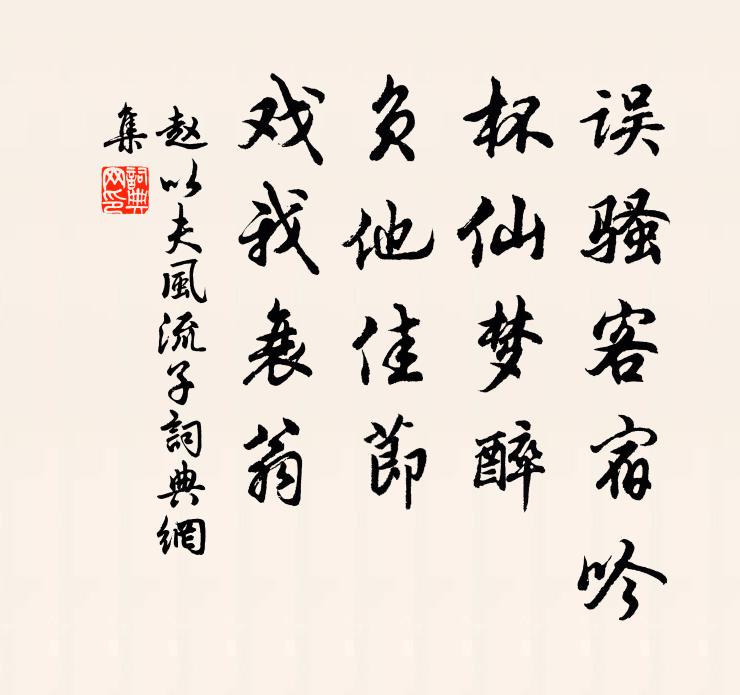 误骚客宿吟
杯仙梦醉
负他佳节
戏我衰翁
赵以夫風流子詞典網
集
詞典
网印